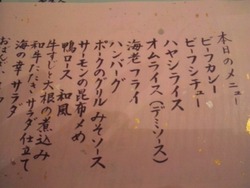 本日のメニュー
ビーフカレー
ビーフシチュー
ハヤシライス
オムライス(デミソース)
海老フライ
ハンバーグ
ポークのグリルみそソース
サーモンの昆布〆め
鴨ロース 和風
牛すじと大根の煮込み
和牛たたきサラダ仕立て
海の幸サラダ